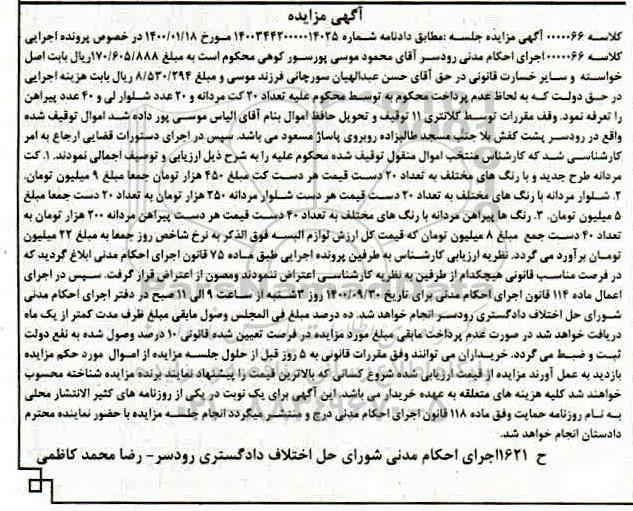 آگهی مزایده
کلاسه ۰۰۰۰۰۶۶ آگهی مزایده جلسه :مطابق دادنامه شماره ۱۴۰۰۳۴۴۲۰۰۰۰۰۱۴۰۲۵ مورخ ۱۴۰۰/۰۱/۱۸ در خصوص پرونده اجرایی
کلاسه ۰۰۰۰۰۶۶ اجرای احکام مدنی رودسر آقای محمود موسی پورسور کوهی محکوم است به مبلغ ۱۷۰/۶۰۵/۸۸۸ریال بابت اصل
خواسته و سایر خسارت قانونی در حق آقای حسن عبدالهیان سورچانی فرزند موسی و مبلغ ۸/۵۳۰/۲۹۴ ریال بابت هزینه اجرایی
در حق دولت که به لحاظ عدم پرداخت محکوم به توسط محکوم علیه تعداد ۲۰ کت مردانه و ۲۰ عدد شلوار لی و ۴۰ عدد پیراهن
را تعرفه نمود. وفق مقررات توسط کلانتری ۱۱ توقیف و تحویل حافظ اموال بنام آقای الیاس موسی پور داده شد اموال توقیف شده
واقع در رودسر پشت کفش بلا جنب مسجد طالبزاده روبروی پاساژ مسعود می باشد. سپس در اجرای دستورات قضایی ارجاع به امر
کارشناسی شد که کارشناس منتخب اموال منقول توقیف شده محکوم علیه را به شرح ذیل ارزیابی و توصیف اجمالی نمودند. ۱. کت
مردانه طرح جدید و با رنگ های مختلف به تعداد ۲۰ دست قیمت هر دست کت مبلغ ۴۵۰ هزار تومان جمعا مبلغ ۹ میلیون تومان.
۲. شلوار مردانه با رنگ های مختلف به تعداد ۲۰ دست قیمت هر دست شلوار مردانه ۲۵۰ هزار تومان به تعداد ۲۰ دست جمعا مبلغ
۵ میلیون تومان. ۳. رنگ ها پیراهن مردانه با رنگ های مختلف به تعداد ۴۰ دست قیمت هر دست پیراهن مردانه ۲۰۰ هزار تومان به
تعداد ۴۰ دست جمع مبلغ ۸ میلیون تومان که قیمت کل ارزش لوازم البسه فوق الذکر به نرخ شاخص روز جمعا به مبلغ ۲۲ میلیون
تومان برآورد می گردد. نظریه ارزیابی کارشناس به طرفین پرونده اجرایی طبق ماده ۷۵ قانون اجرای احکام مدنی ابلاغ گردید که
در فرصت مناسب قانونی هیچکدام از طرفین به نظریه کارشناسی اعتراض ننمودند ومصون از اعتراض قرار گرفت. سپس در اجرای
اعمال ماده ۱۱۴ قانون اجرای احکام مدنی برای تاریخ ۱۴۰۰/۰۹/۳۰ روز ۳شنبه از ساعت ۹ الی ۱۱ صبح در دفتر اجرای احکام مدنی
شورای حل اختلاف دادگستری رودسر انجام خواهد شد. ده درصد مبلغ فی المجلس وصول مابقی مبلغ ظرف مدت کمتر از یک ماه
دریافت خواهد شد در صورت عدم پرداخت مابقی مبلغ مورد مزایده در فرصت تعیین شده قانونی۱۰ درصد وصول شده به نفع دولت
ثبت و ضبط می گردد. خریداران می توانند وفق مقررات قانونی به ۵ روز قبل از حلول جلسه مزایده از اموال مورد حکم مزایده
بازدید به عمل آورند مزایده از قیمت ارزیابی شده شروع کسانی که بالاترین قیمت را پیشنهاد نمایند برنده مزایده شناخته محسوب
خواهند شد کلیه هزینه های متعلقه به عهده خریدار می باشد. این آگهی برای یک نوبت در یکی از روزنامه های کثیر الانتشار محلی
به نام روزنامه حمایت وفق ماده ۱۱۸ قانون اجرای احکام مدنی درج و منتشر میگردد انجام جلسه مزایده با حضور نماینده محترم
دادستان انجام خواهد شد.
ح ۱۶۲۱اجرای احکام مدنی شورای حل اختلاف دادگستری رودسر- رضا محمد کاظمی
ParsNamadData